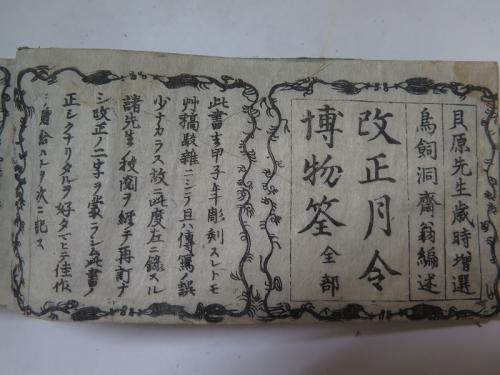 貝原先生歳時増選
鳥飼洞齋翁編述
改正月令
博物筌 全部
此書去甲子年彫刻スレトモ
艸稿駁雜ニシテ且ハ傳寫誤
少ナカラス故ニ此度左ニ錄スル
諸先生校閲ヲ経テ再訂ナ
シ改正ノ二字ヲ蒙ラシム此書ノ
正シクナリタルヲ好タマヒテ佳作
賜ハルヲ次ニ記ス